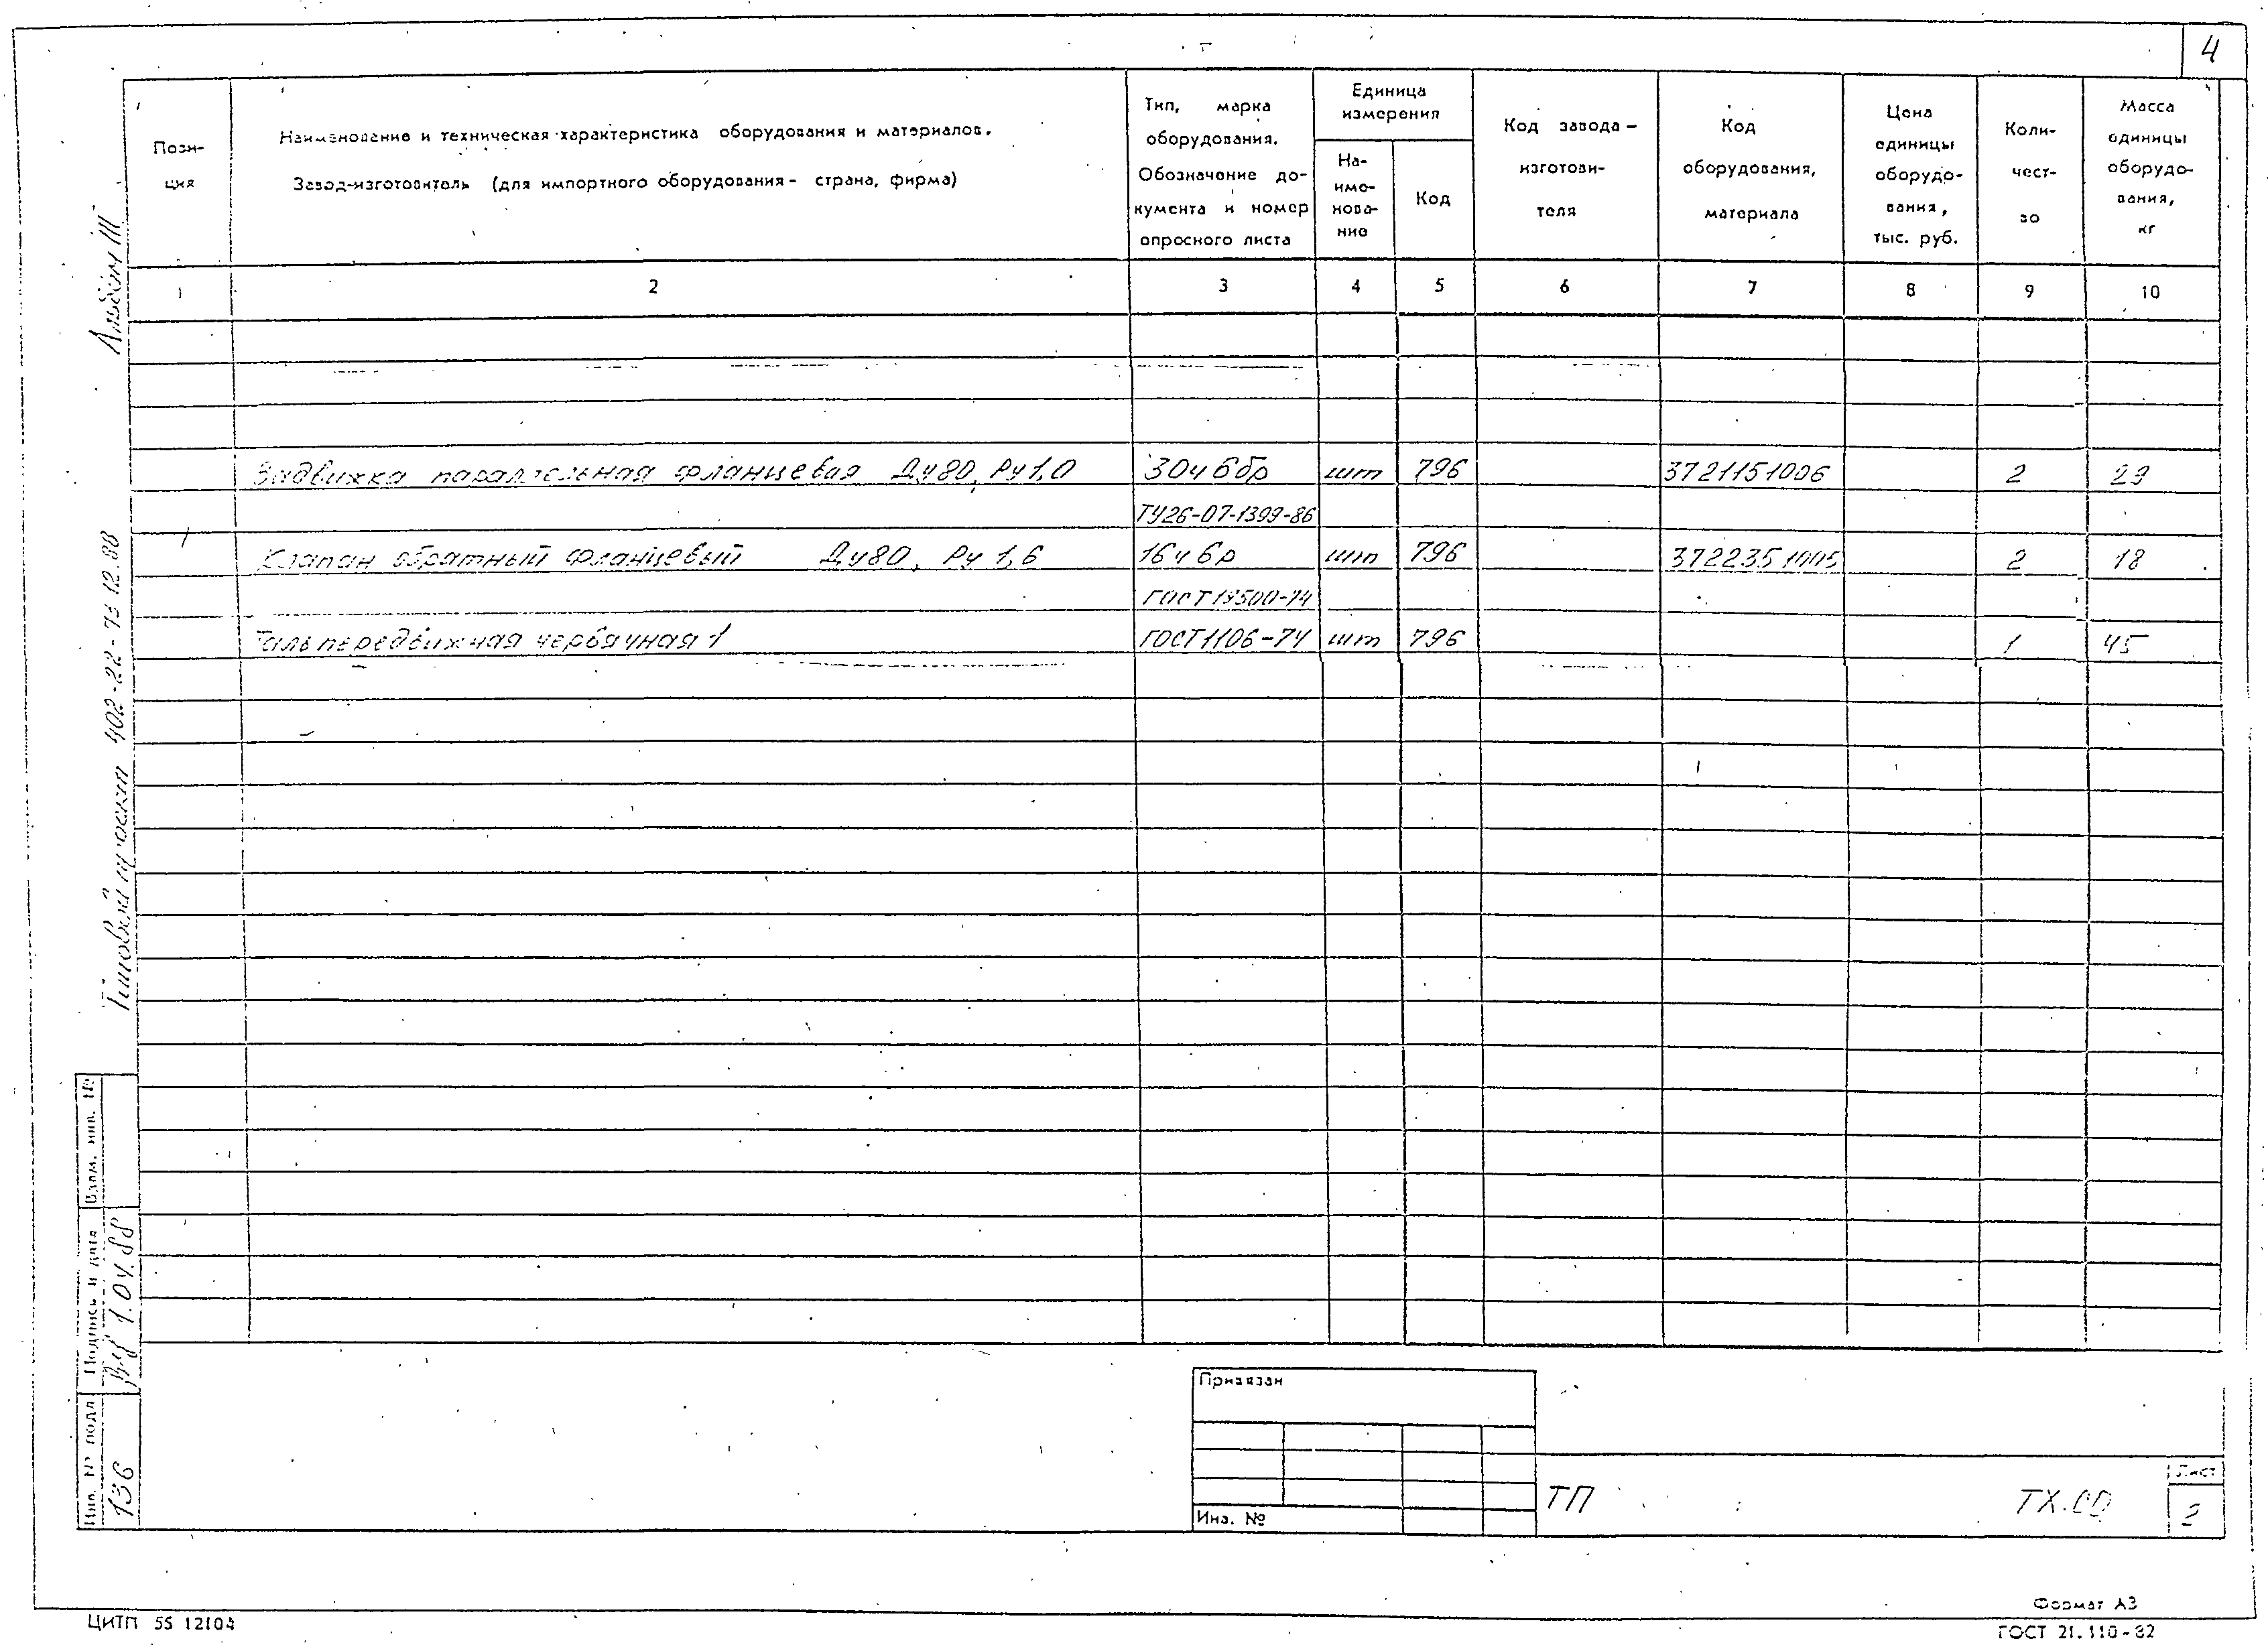 4
Пози-
ция
Наименование и техническая характеристика оборудования и материалов.
Завод-изготовитель (для импортного оборудования - страна, фирма)
Тип, марка
оборудования.
Обозначение до-
кумента и номер
опросного листа
Единица
измерения
На-
име-
нова-
ние
Код
Код завода-
изготови-
теля
Код
оборудования,
материала
Цена
единицы
оборудо-
вания,
тыс. руб.
Коли-
чест-
во
Масса
единицы
оборудо-
вания,
кг
1 2 3 4 5 6 7 8 9 10
Задвижка параллельная фланцевая Ду80, Ру1,0 30ч6бр шт 796 3721151006 2 29
ТУ26-07-1399-86
Клапан обратный фланцевый Ду80, Ру 1,6 16ч6р шт 796 3722351005 2 18
ГОСТ19500-74
Таль передвижная червячная 1 ГОСТ1106-74 шт 796 1 45
Альбом III
Типовой проект 402-22-73 12.88
Взам. инв. №
Подпись и дата
1.04.88
Инв. № подл
136
Привязан
Инв. №
ТП
ТХ.СО
Лист
2
ЦИТП 55 12104
Формат А3
ГОСТ 21.110-82